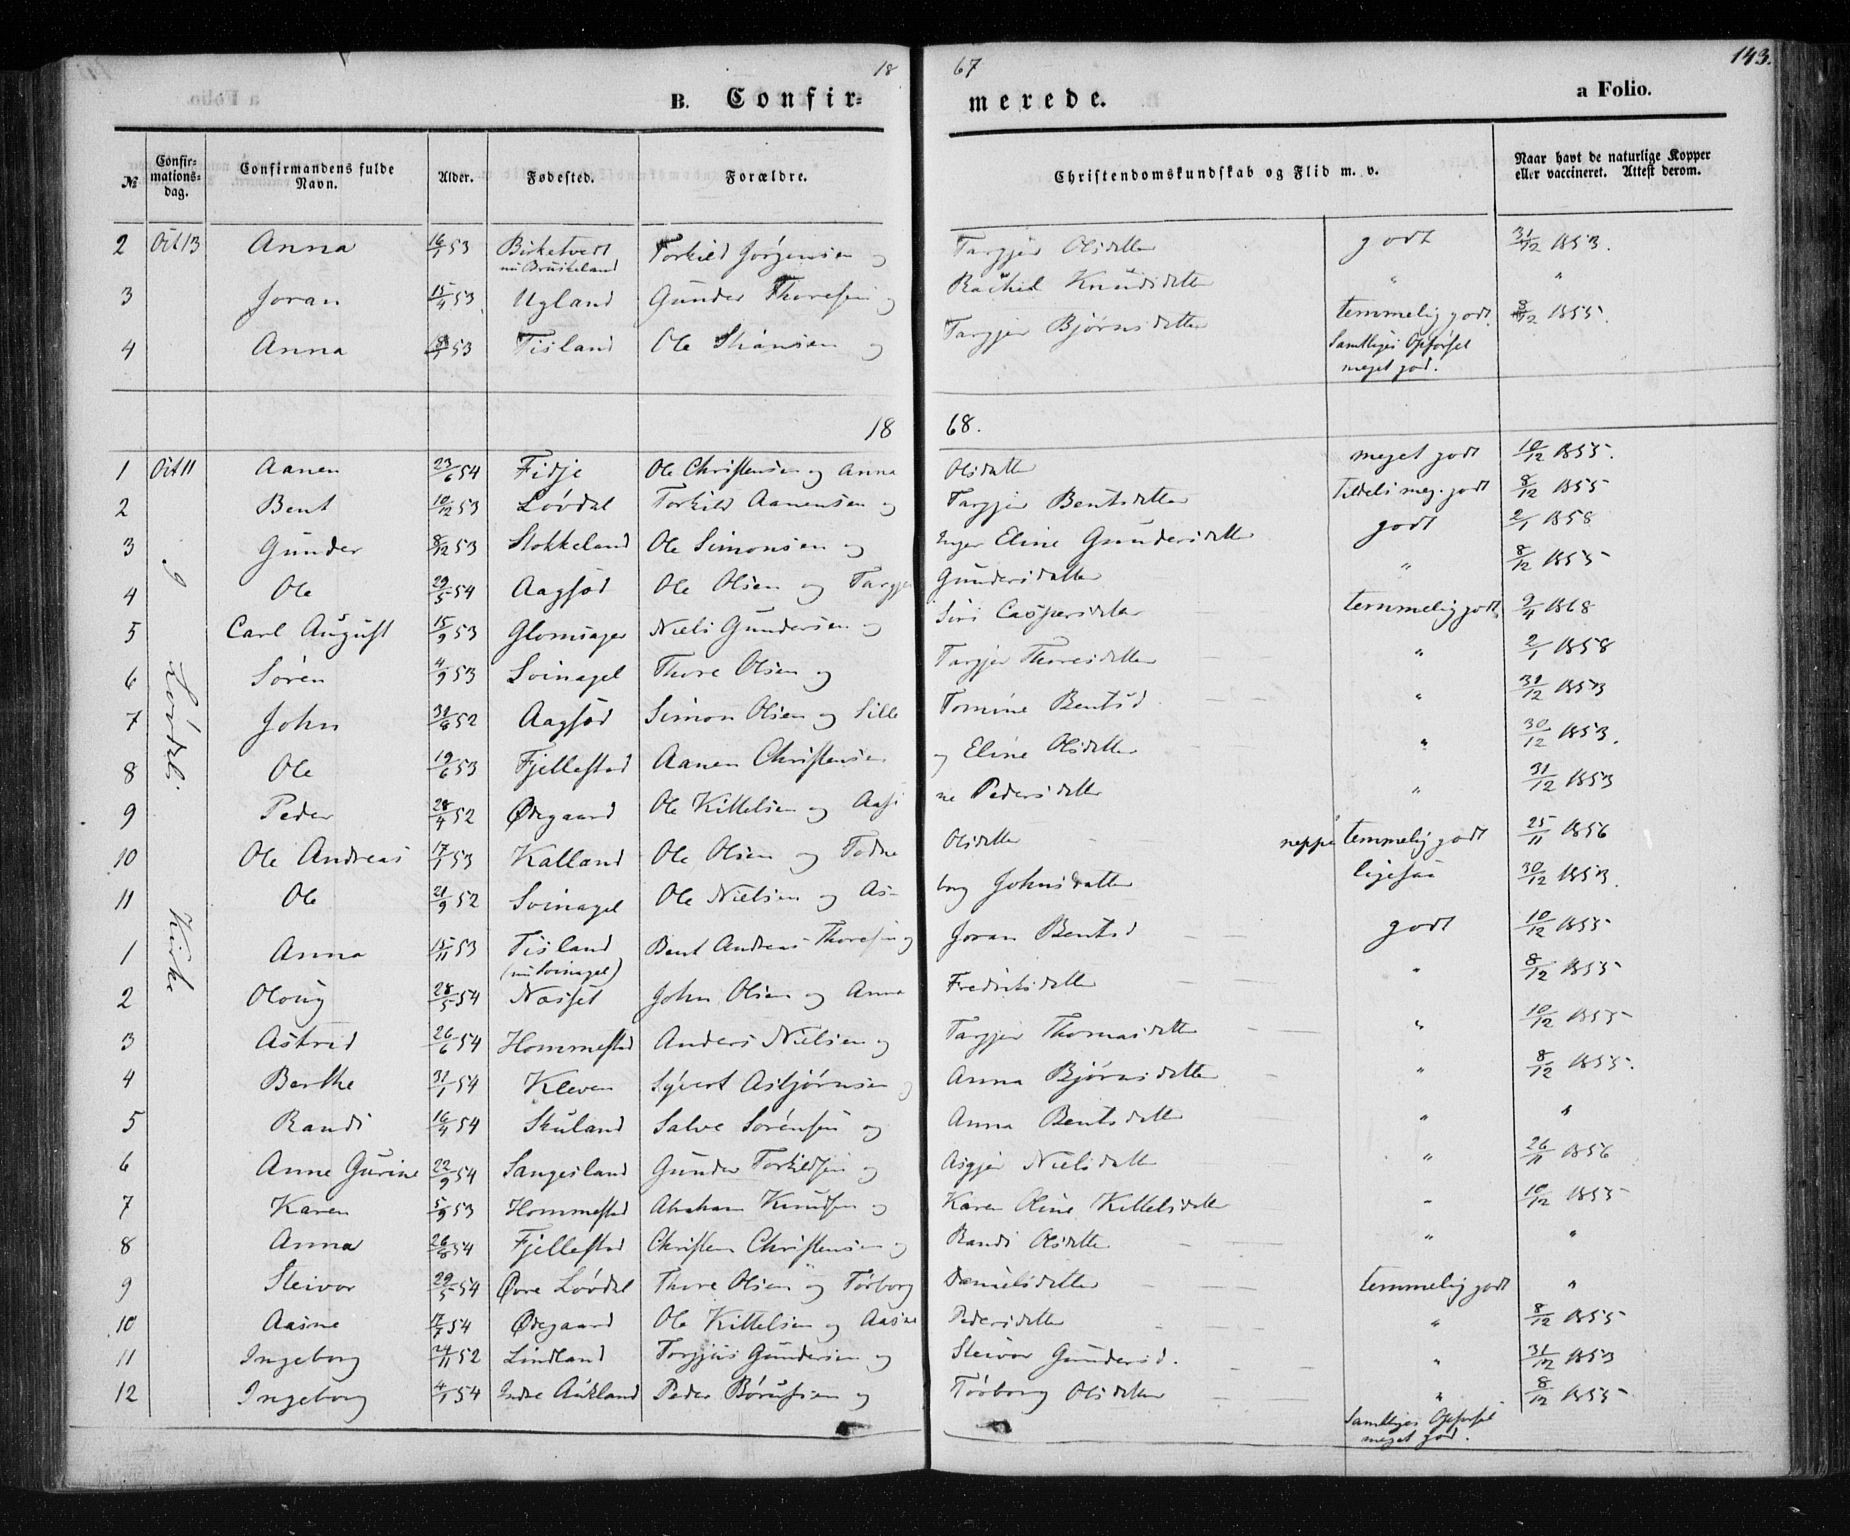 18 67 143.
B. Confir= merede. a Folio.
№ Confir=mations=dag. Confirmandens fulde Navn. Alder. Fødested. Forældre. Christendomskundskab og Flid m. v. Naar havt de naturlige Kopper eller vaccineret. Attest derom.
2 Oct 13 Anna 16/1 53 Birketvedt Torkild Jörgensen og Targjer Olsdatter godt 31/12 1853.
nu Bruskeland
3 Joran 15/4 53 Ugland Gunder Thoresen og Rachel Knudsdatter " "
4 Anna 53 Tisland Ole Stiansen og Targjer Björnsdatter temmelig godt 8/12 1855.
Samtliges Opførsel
meget god.
18 68.
1 Oct 11 Aanen 23/6 54 Fidje Ole Christensen og Anna Olsdatter meget godt 10/12 1855.
2 Bent 10/12 53 Lövdal Torkild Aanensen og Targjer Bentsdatter Tildels meg. godt 8/12 1855
3 Gunder 8/12 53 Stokkeland Ole Simonsen og Inger Eline Gundersdatter godt 2/1 1858
4 Ole 29/5 54 Aagsød Ole Olsen og Targjer Gundersdatter " 8/12 1855
5 Carl August 15/9 53 Glomsager Niels Gundersen og Siri Caspersdatter temmelig godt 9/4 1868
6 Sören 4/9 53 Svinagel Thore Olsen og Targjer Thoresdatter " 2/1 1858
7 John 31/8 52 Aagsød Simon Olsen og Sille Tomine Bentsd " 31/12 1853
8 Ole 19/6 53 Fjellestad Aanen Christensen og Eline Olsdatter " 30/12 1853.
9 Peder 28/4 52 Ødegaard Ole Kittelsen og Aasne Pedersdatter " 31/12 1853
10 Ole Andreas 17/1 53 Kalland Ole Olsen og Todne Olsdatter neppe temmelig godt 25/11 1856
11 Ole 21/9 52 Svinagel Ole Nielsen og As-borg Johnsdatter ligesaa 30/12 1853.
1 Anna 15/11 53 Tisland Bent Andreas Thoresen og Joran Bentsd godt 10/12 1855
(nu Svinagel)
2 Oloug 28/5 54 Nasset John Olsen og Anna Fredriksdatter " 8/12 1855
3 Astrid 26/6 54 Hommestad Anders Nielsen og Targjer Thomasdatter " 10/12 1855
4 Berthe 31/1 54 Kleven Syvert Asbjörnsen og Anna Bjørnsdatter " 8/12 1855.
5 Randi 16/4 54 Skuland Salve Sörensen og Anna Bentsdatter " "
6 Anne Gurine 22/9 54 Sangesland Gunder Torkildsen og Asgjer Nielsdatter " 26/11 1856
7 Karen 5/9 53 Hommestad Abraham Knudsen og Karen Oline Kittelsdatter " 10/12 1855
8 Anna 26/8 54 Fjellestad Christen Christensen og Randi Olsdatter " "
9 Steivor 29/5 54 Øvre Lövdal Thore Olsen og Törborg Danielsdatter temmelig godt "
10 Aasne 54 Ødegaard Ole Kittelsen og Aasne Pedersdatter " 8/12 1855
11 Ingeborg 24/11 52 Lindland Torgjus Gundersen og Steivor Gundersd. " 31/12 1853
12 Ingeborg 4/1 54 Indre Aukland Peder Börufsen og Törborg Olsdatter " 8/12 1855
Samtliges Opførsel
meget god.
i Lövdals Kirke